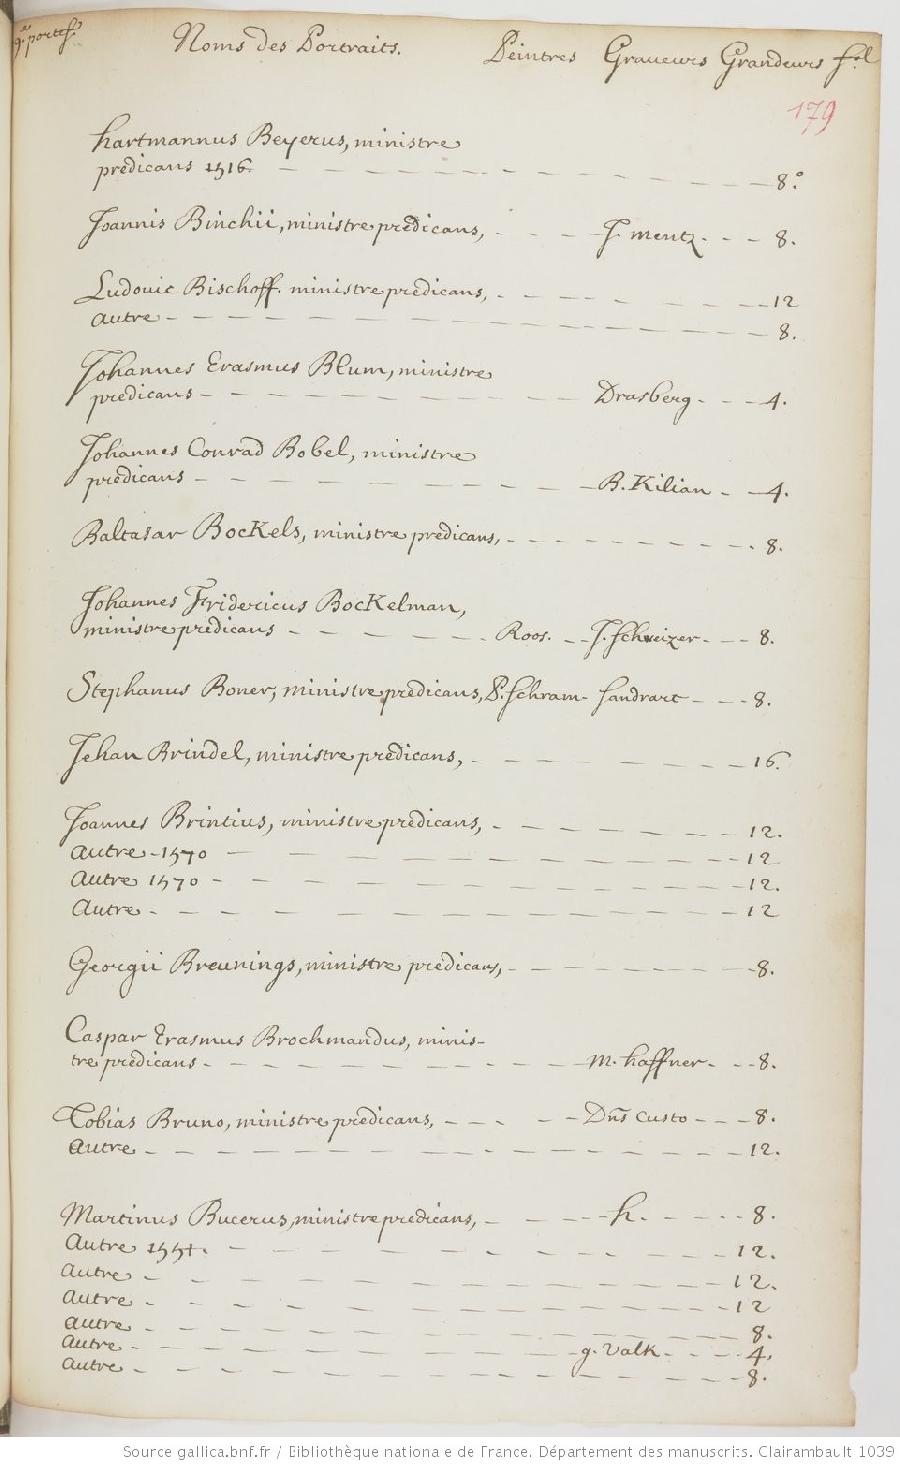 9.e portef.
Noms des Portraits. Peintres Graveurs Grandeurs fol
179
hartmannus Beyerus, ministre
predicans 1516 - - - 8.°
Joannis Binchii, ministre predicans, - - - J. mentz. - - - 8.
Ludovic Bischoff. ministre predicans, - - - 12
autre - - - 8.
Johannes Erasmus Blum, ministre
predicans - - - Drasberg - - - 4.
Johannes Conrad Bobel, ministre
predicans - - - B. Kilian - - 4.
Baltasar Bockels, ministre predicans, - - - 8.
Johannes Fridericus Bockelman,
ministre predicans - - - Roos. - - J. Schweizer - - - 8.
Stephanus Boner, ministre predicans, P. Schram - Sandrart - - - 8.
Jehan Brindel, ministre predicans, - - - 16.
Joannes Brintius, ministre predicans, - - - 12.
autre - 1570 - - - 12
autre 1570 - - - 12.
autre - - - 12
Georgii Breunings, ministre predicans, - - - 8.
Caspar Erasmus Brochmandus, minis-
tre predicans - - - m. haffner - - - 8.
Tobias Bruno, ministre predicans, - - - Dns Custo - - - 8.
autre - - - 12.
Martinus Bucerus, ministre predicans, - - - h. - - - 8.
autre 1551. - - - 12.
autre - - - 12.
autre - - - 12
autre - - - 8.
autre - - - g. Valk. - - - 4.
autre - - - 8.
Source gallica.bnf.fr / Bibliothèque nationale de France. Département des manuscrits. Clairambault 1039